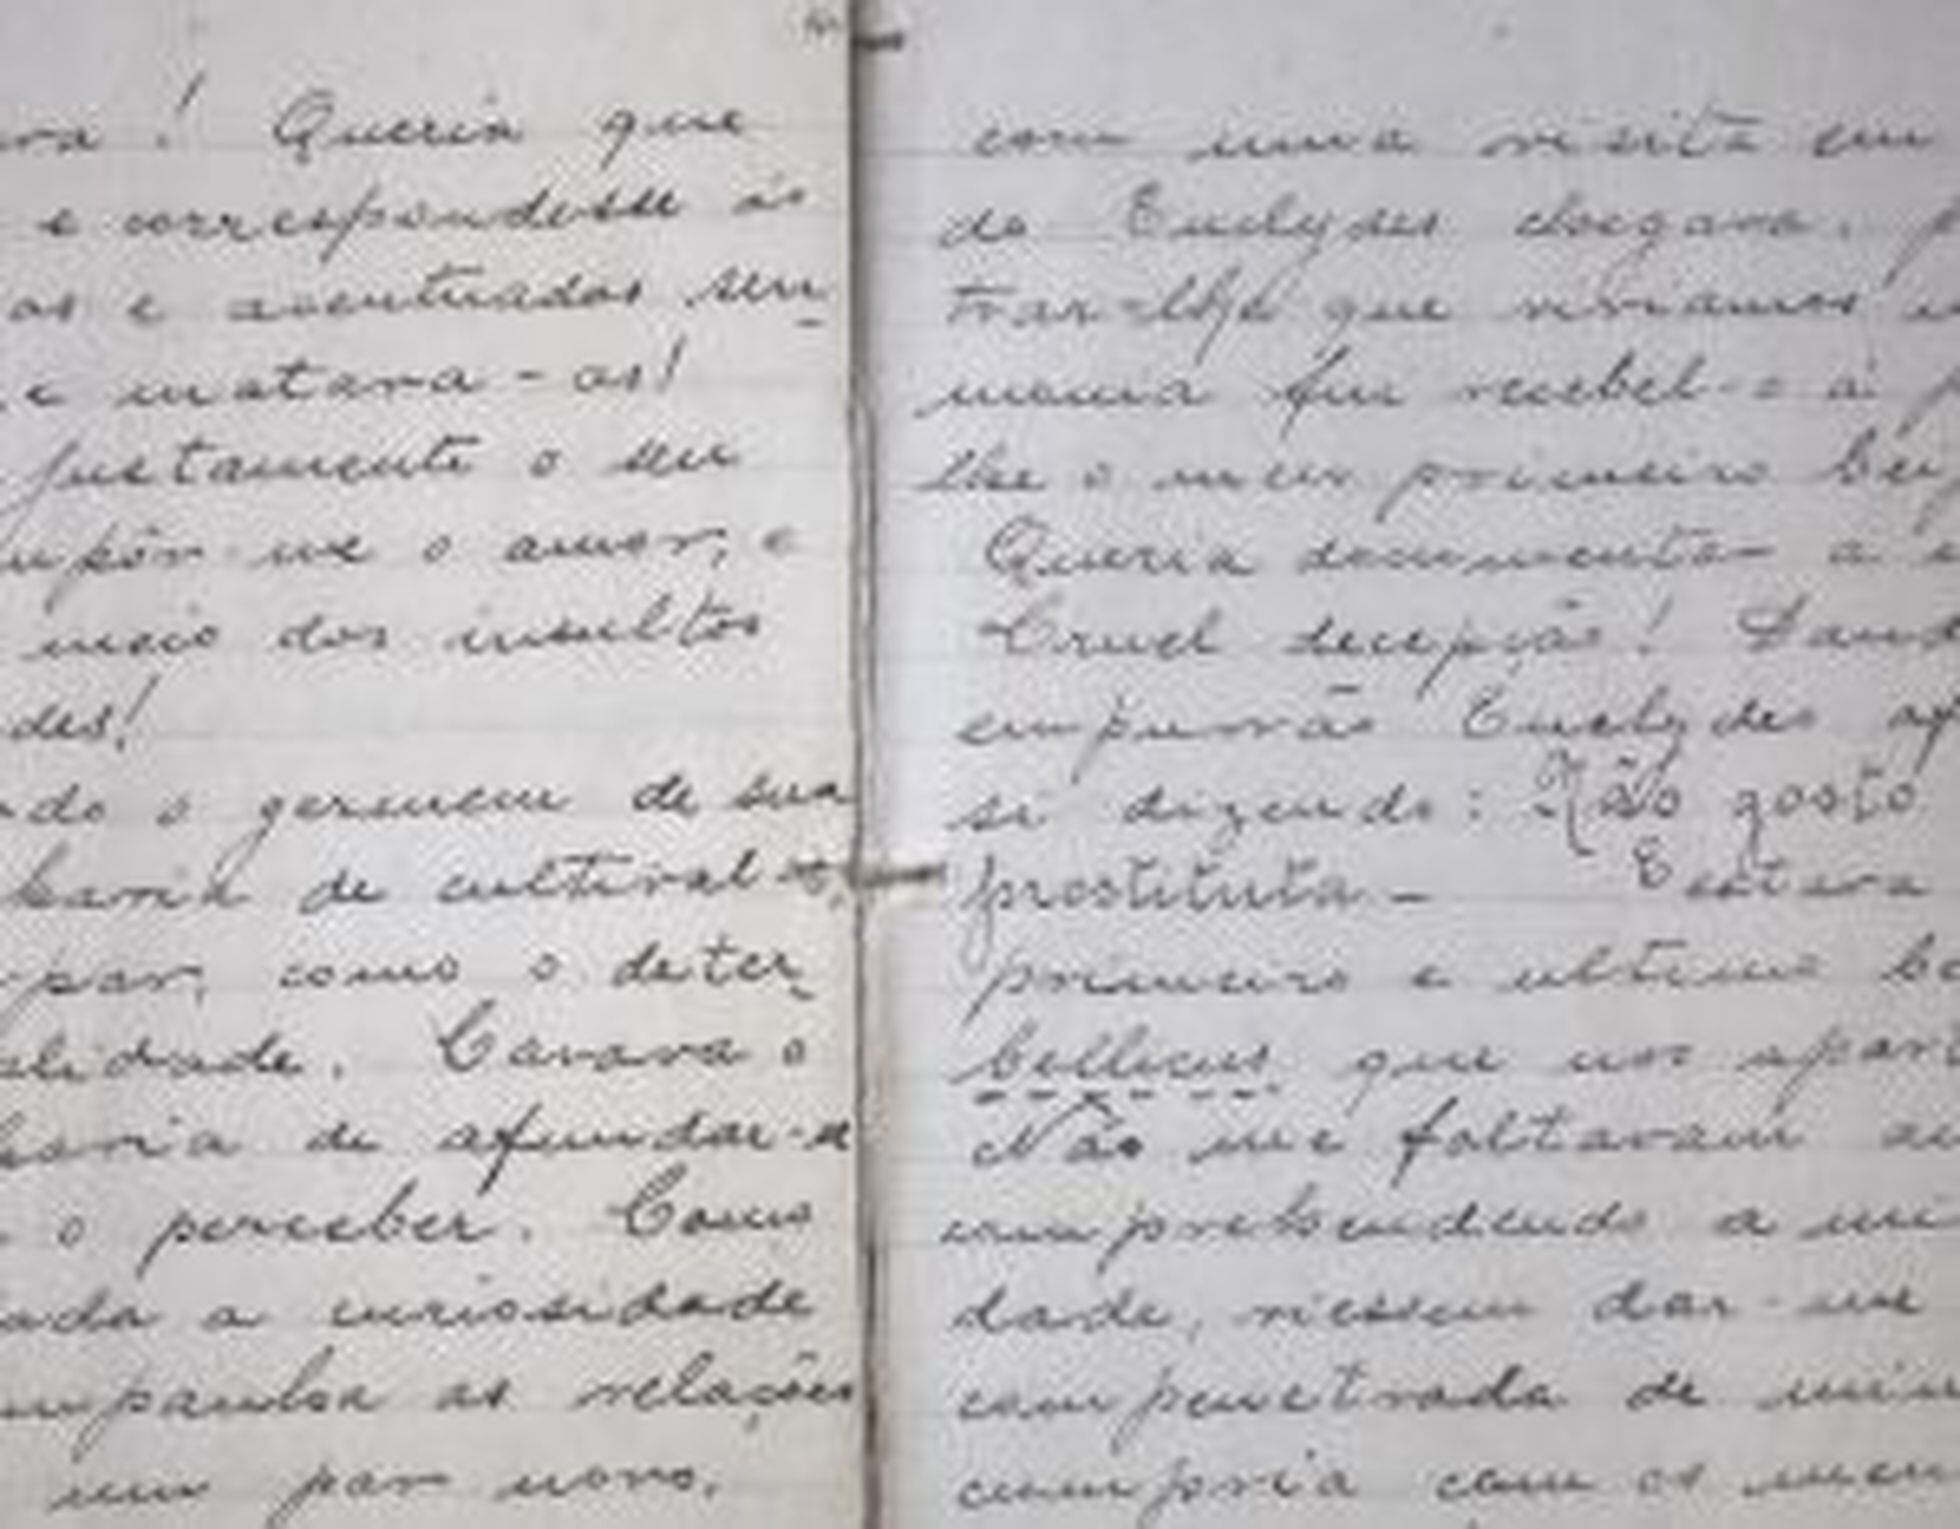 ! Queria que
e correspondesse ás
os e aventurados seu
e matava-os!
justamente o seu
impôr-me o amor, e
meio dos insultos
des!
do o germem de sua
havia de cultival-o,
par, como o deter
alidade. Cavava o
havia de afundar-se
o perceber. Como
ada a curiosidade
mpanha as relações
num par novo.
com uma visita em
do Euclydes chegava,
trar-lhe que viviamos
mama fui recebel-o á
lhe o meu primeiro bei
Queria documentar a
Cruel decepção! Dand
empurrão Euclydes
si dizendo: Não gosto
prostituta - Estava
primeiro e ultimo
bellicus que nos
Não me faltavam
comprehendendo a mi
dade, viessem dar-me
compenetrada de min
cumpria com os meu